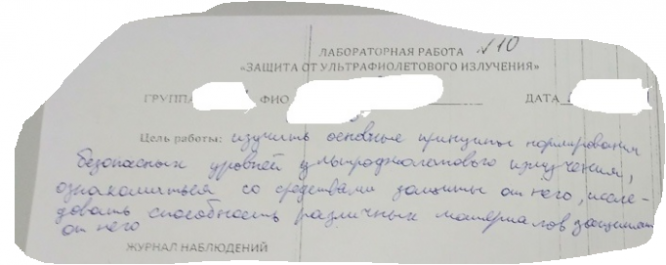 ЛАБОРАТОРНАЯ РАБОТА №10
«ЗАЩИТА ОТ УЛЬТРАФИОЛЕТОВОГО ИЗЛУЧЕНИЯ»
ГРУППА ФИО ДАТА
Цель работы: изучить основные принципы нормирования
безопасных уровней ультрафиолетового излучения,
ознакомиться со средствами защиты от него, иссле-
довать способность различных материалов защищать
от него
ЖУРНАЛ НАБЛЮДЕНИЙ